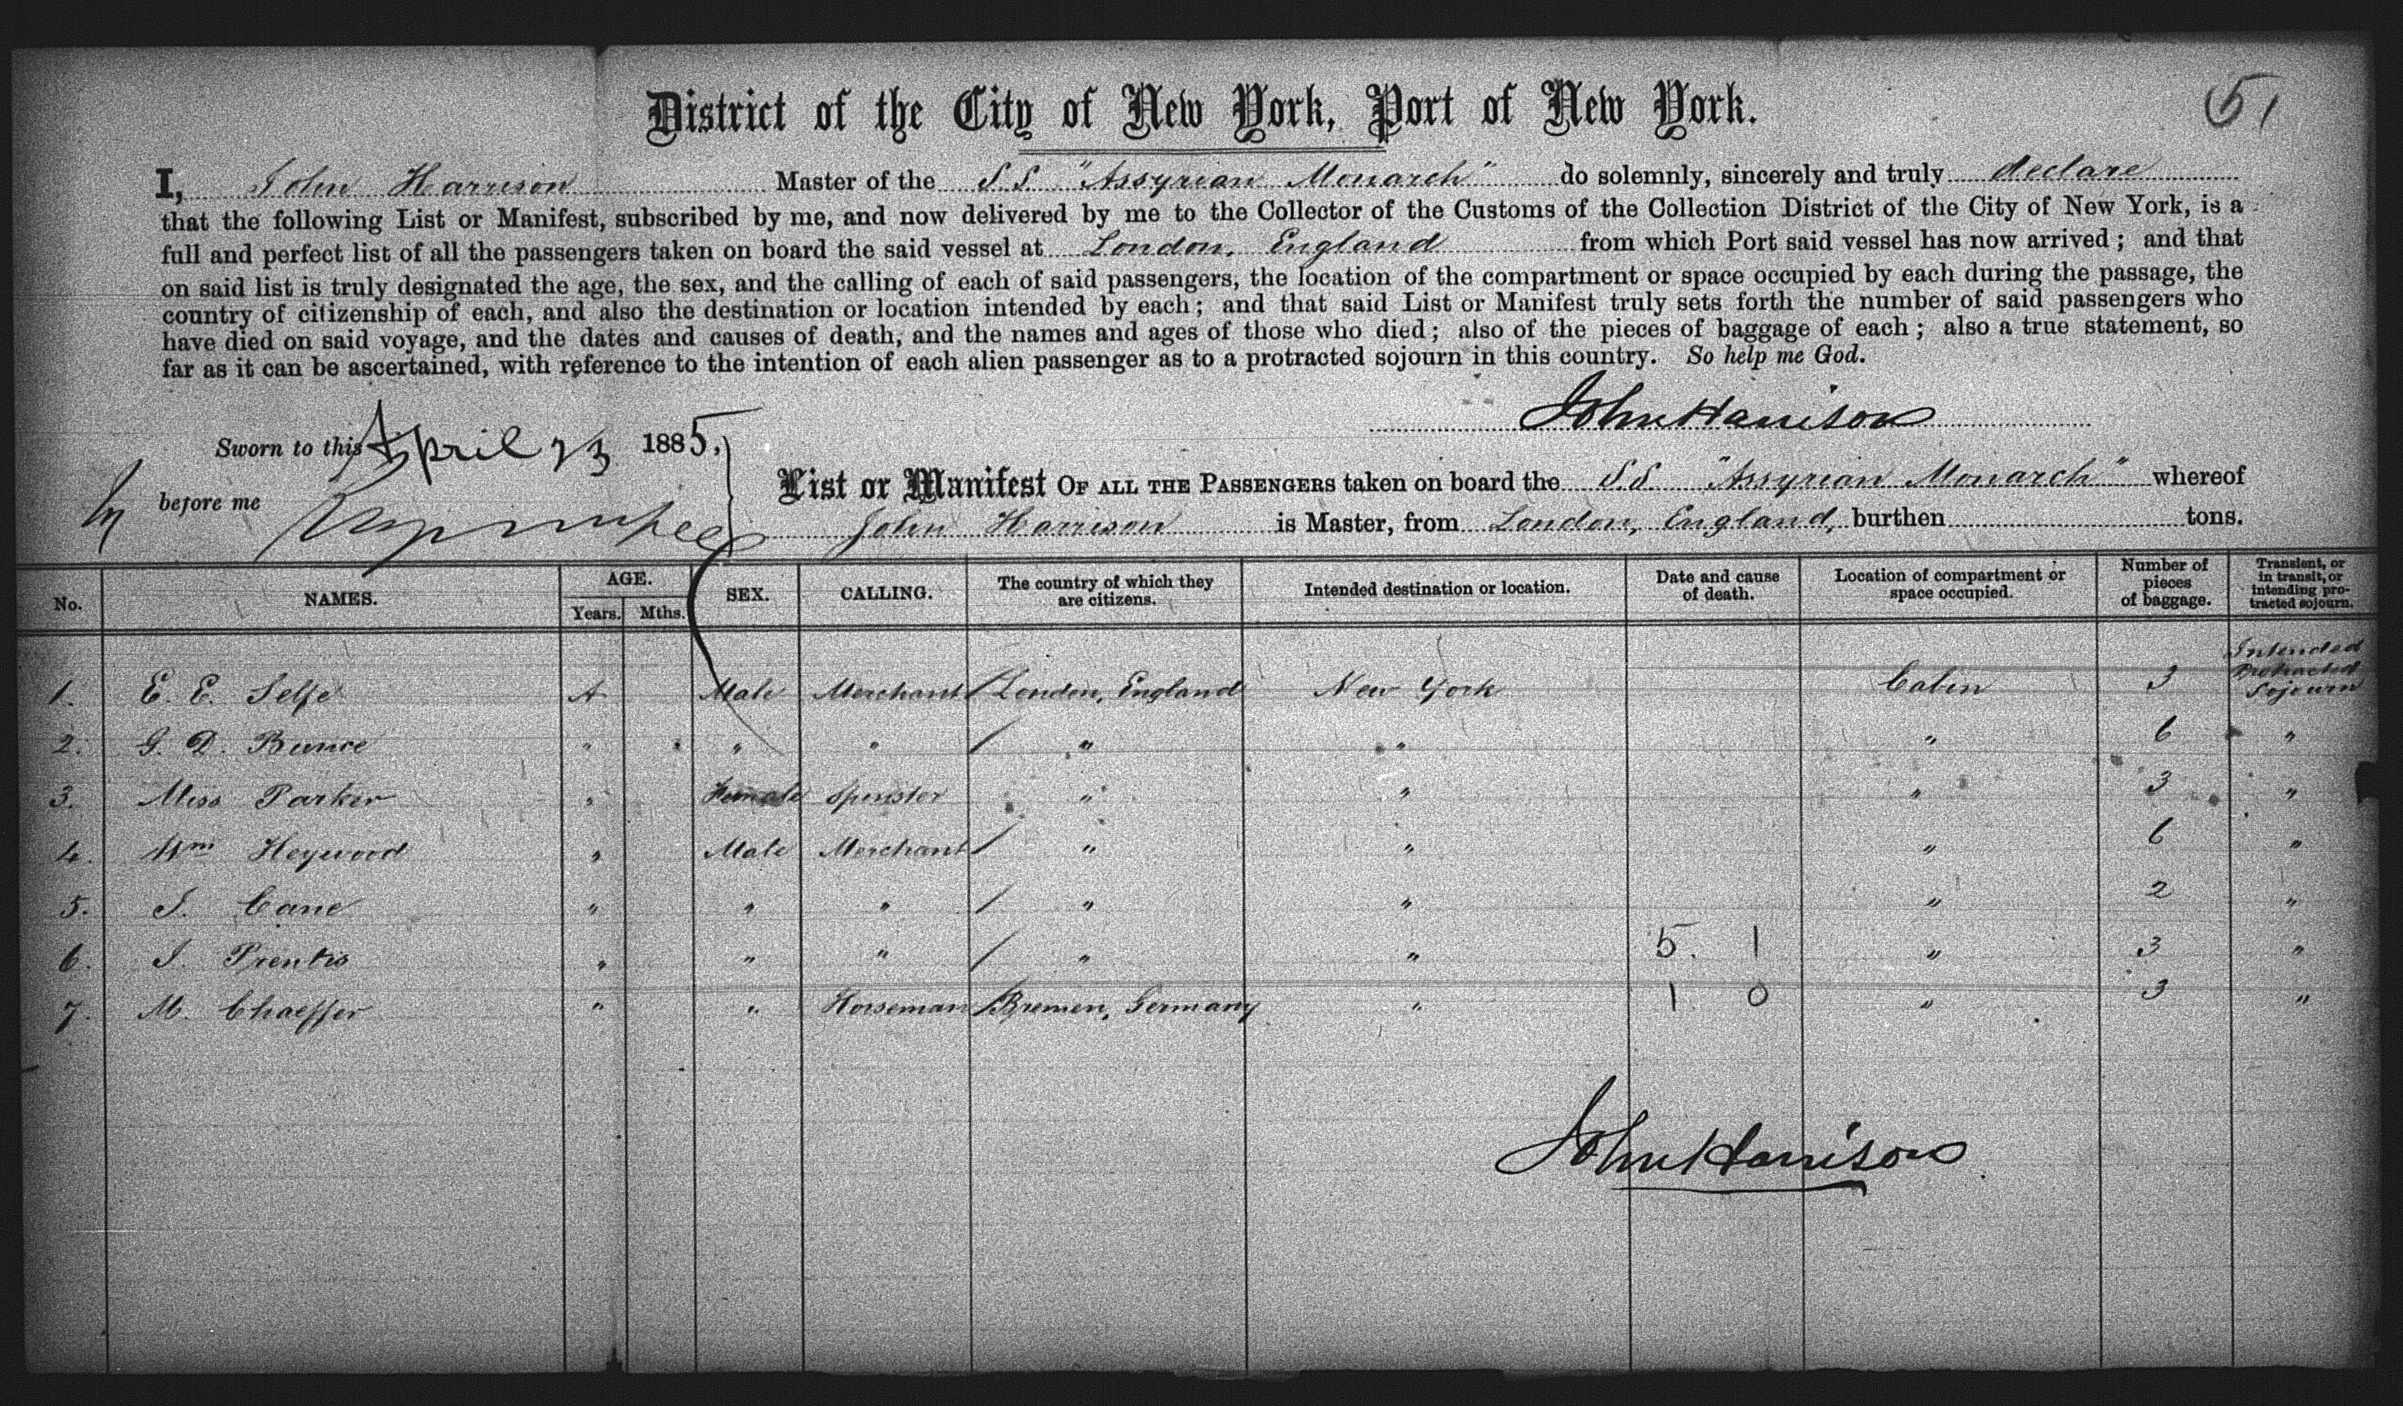 District of the City of New York, Port of New York.
51
I, John Harrison Master of the S.S. "Assyrian Monarch" do solemnly, sincerely and truly declare
that the following List or Manifest, subscribed by me, and now delivered by me to the Collector of the Customs of the Collection District of the City of New York, is a
full and perfect list of all the passengers taken on board the said vessel at London, England from which Port said vessel has now arrived; and that
on said list is truly designated the age, the sex, and the calling of each of said passengers, the location of the compartment or space occupied by each during the passage, the
country of citizenship of each, and also the destination or location intended by each; and that said List or Manifest truly sets forth the number of said passengers who
have died on said voyage, and the dates and causes of death, and the names and ages of those who died; also of the pieces of baggage of each; also a true statement, so
far as it can be ascertained, with reference to the intention of each alien passenger as to a protracted sojourn in this country. So help me God.
John Harrison
Sworn to this April 23 1885,
before me
List or Manifest OF ALL THE PASSENGERS taken on board the S.S. "Assyrian Monarch" whereof
John Harrison is Master, from London, England, burthen tons.
No. NAMES. AGE. Years. Mths. SEX. CALLING. The country of which they are citizens. Intended destination or location. Date and cause of death. Location of compartment or space occupied. Number of pieces of baggage. Transient, or in transit, or intending protracted sojourn.
1. E. E. Selfe A Male Merchant / London, England New York Cabin 3 Intended Protracted Sojourn
2. G. D. Bunce " " " / " " " 6 "
3. Miss Parker " Female Spinster " " " 3 "
4. Wm Heywood " Male Merchant / " " " 6 "
5. J. Cane " " " / " " " 2 "
6. J. Prentis " " " / " " 5. 1 " 3 "
7. M. Chaeffer " " Horseman / Bremen, Germany " 1 0 " 3 "
John Harrison